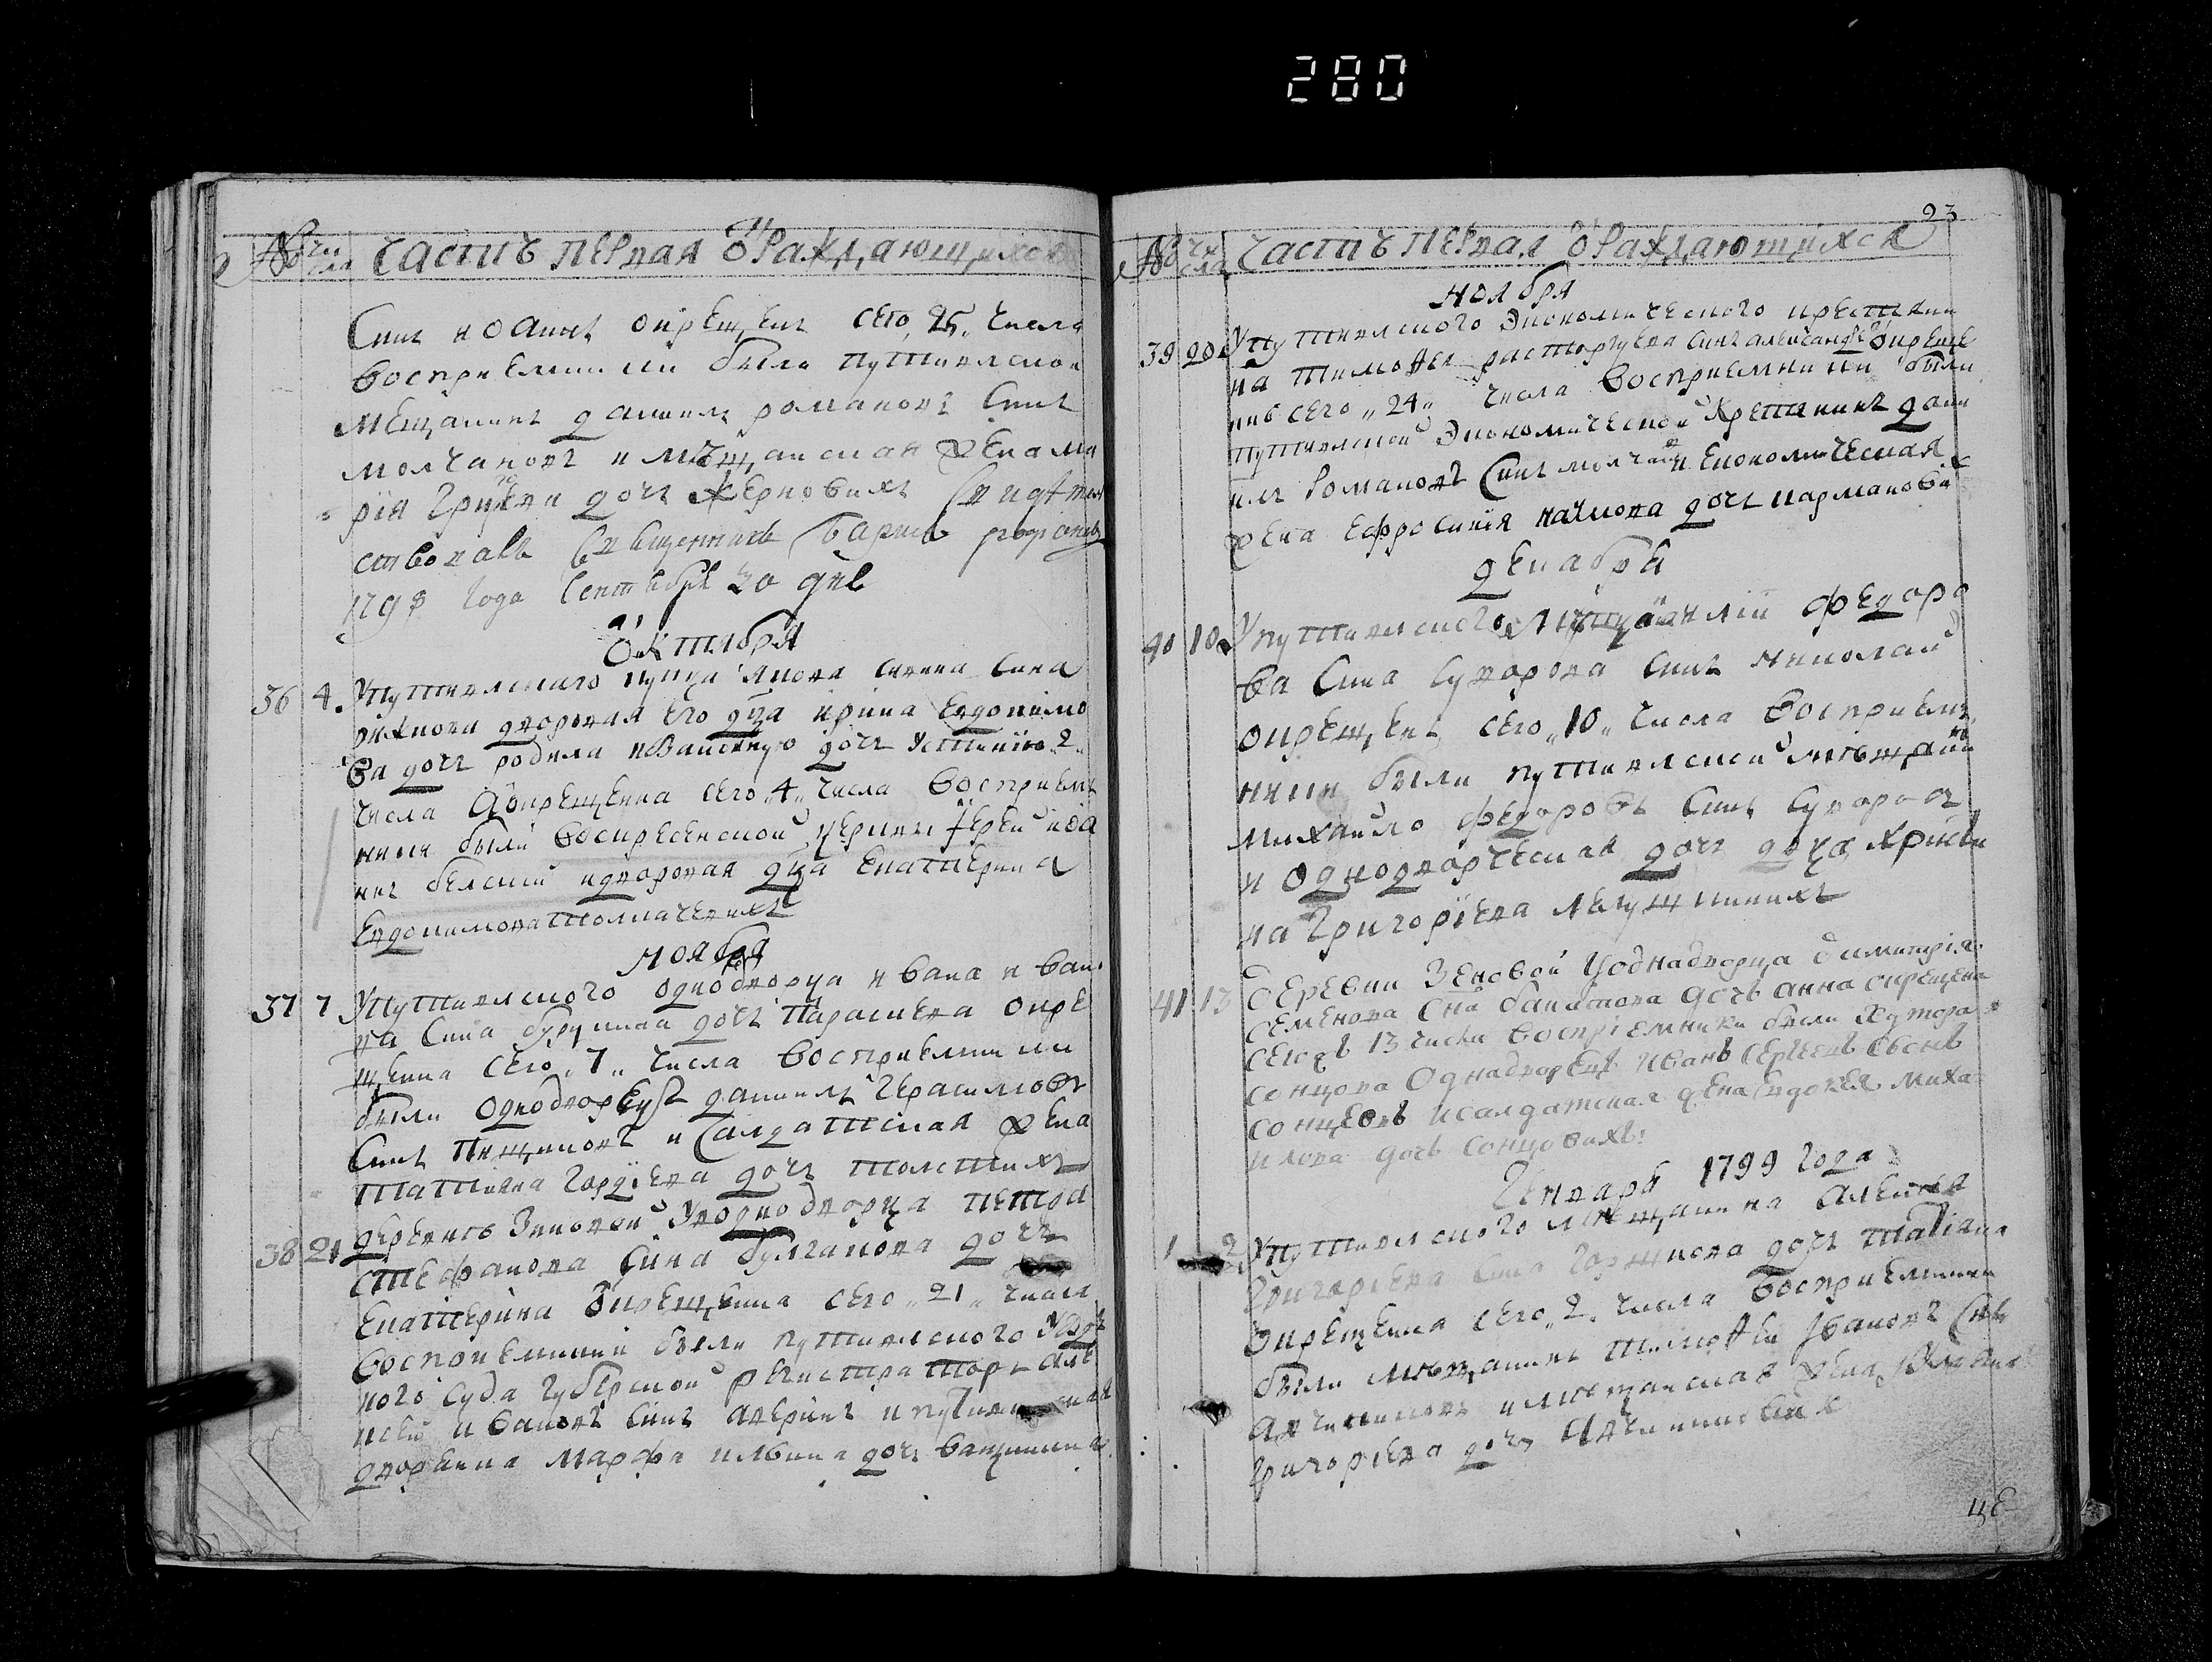 280
№ чи сла Часть первая ѡ Раждающихся
Синъ иоаннъ окрещенъ сего 25 числа
восприемники были путивлской
мещанинъ даниилъ романовъ Синъ
молчановъ и мѣщанская жена ма
рїя Григо дочь жерновихъ Свидѣтел
ствовалъ Священникъ
1798 года Сентября 30 дня
Октября
36 4 Упутивлскаго купца Якова Сина
дворовая его дѣвка ирина Евдокимо
ва дочь родила дочь Устинїю 2
числа Аѡкрещенна сего 4 числа восприемъ
ники были воскресенской церкви їерей иоа
ннъ белский идворовая дѣвка Екатерина
Евдокимова толмачевихъ
Ноября
37 7 Упутивлского однодворца ивана иван
ва Сина дочь Параскева окре
щенна сего 7 числа восприемники
были Однодворецъ даниилъ Герасимовъ
Синъ и Салдатская жена
татияна Гордїева дочь толстихъ
38 21 деревнѣ Зиновой Уоднодворца петра
стефанова Сина булгакова дочь
Екатерина ѡкрещенна сего 21 числа
восприемники были путивлского Уезд
ного суда губерской регистраторъ але
ксей ивановъ синъ аверинъ и путив
дворянка марфа илвина дочь
23
№ чи сла Часть первая ѡ Раждающихся
Ноября
39 20 Упутивлского Экономического крестяни
на тимоѳея расторгуева синъ александръ ѡкреще
нъ сего 24 числа восприемники были
путивлской Экономической Крестянинъ дани
илъ Романовъ Синъ молчановъ и Економическая
жена ефросинїя наумова дочь кармановых
декабря
40 10 Упутивлского мещанина федоро
ва Сина суворова Синъ николай
окрещенъ сего 10 числа восприем
ники были путивлской мѣщанинъ
михайло федоровъ Синъ Суворовъ
и Однодворческая дочь дѣвка Христи
на Григорїева
41 13 деревни Зеновой Уоднадворца димитрїя
семенова сна дочь анна окрещена
сегожъ 13 числа воспрїемники были Хутора
сонцова Однадворецъ Иванъ Сергеевъ снъ
сонцовъ исалдатская жена Евдокея миха
илова дочь сонцовихъ
Генваря 1799 года
1 2 Упутивлского мещанина алексея
Григорїева Сина дочь татїяна
ѡкрещенна сего 2 числа восприемники
были мѣщанинъ тимоѳей Ївановъ снъ
и мѣщанская жена
григорїева дочь
це